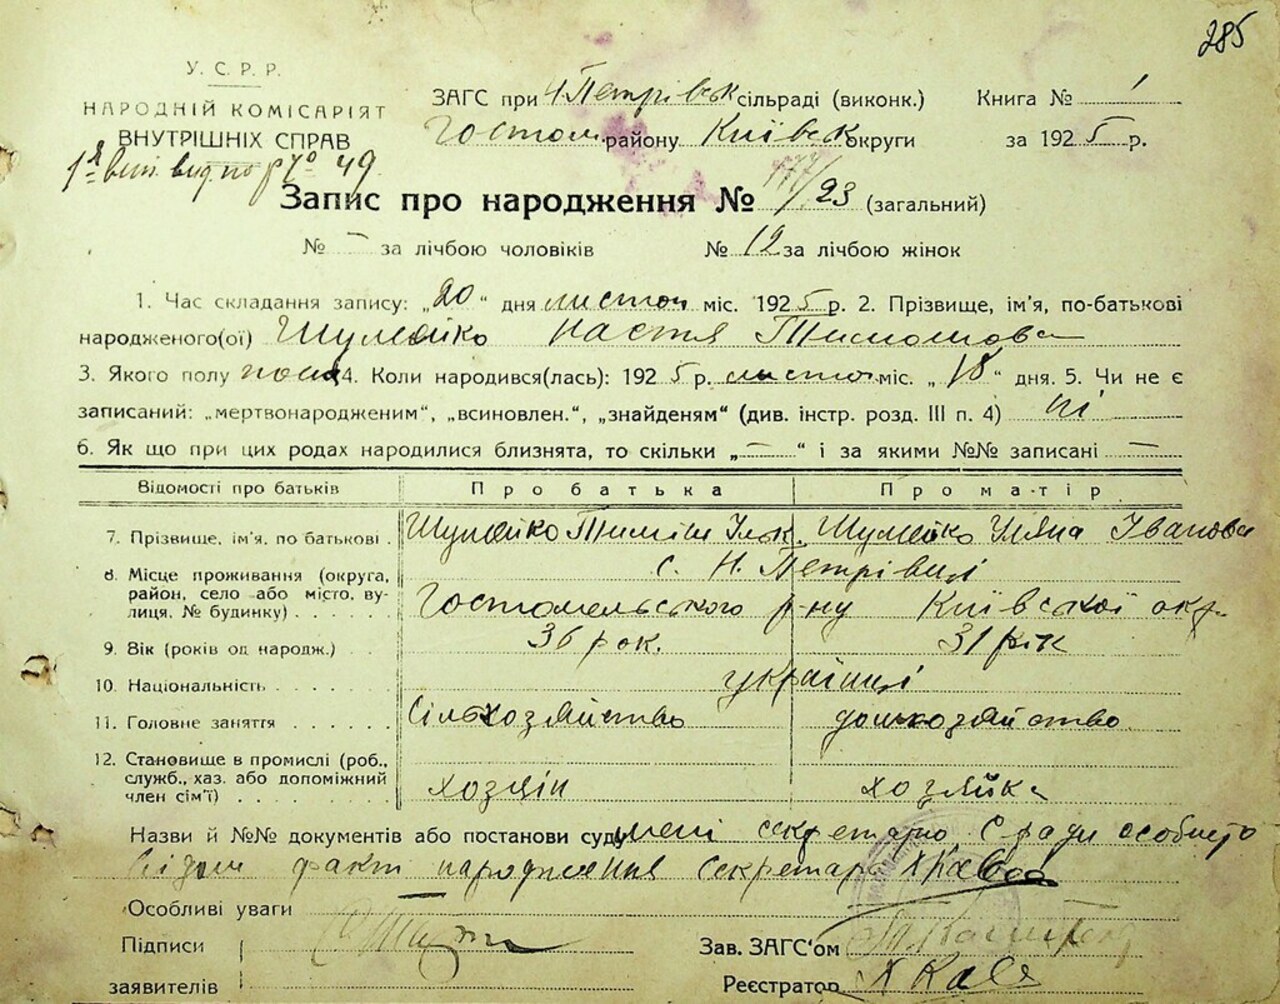 285
У. С. Р. Р.
НАРОДНІЙ КОМІСАРІЯТ
ВНУТРІШНІХ СПРАВ
ЗАГС при Петрівськ сільраді (виконк.) Книга № 1
Гостом. району Київськ округи за 1925 р.
49
Запис про народження № 177/23 (загальний)
№ – за лічбою чоловіків № 12 за лічбою жінок
1. Час складання запису: „20“ дня листоп міс. 1925 р. 2. Прізвище, ім'я, по-батькові
народженого(ої) Шумейко Настя Тимошова
3. Якого полу 4. Коли народився(лась): 1925 р. листоп міс. „18“ дня. 5. Чи не є
записаний: „мертвонародженим“, „всиновлен.“, „знайденям“ (див. інстр. розд. III п. 4) ні
6. Як що при цих родах народилися близнята, то скільки „—“ і за якими №№ записані —
Відомості про батьків Про батька Про матір
7. Прізвище, ім'я, по батькові . Шумейко Тиміш Ульк. Шумейко Уляна Іванова
8. Місце проживання (округа, район, село або місто, вулиця, № будинку) . . . . . с. Н. Петрівці
Гостомельського р-ну Київської окр.
9. Вік (років од народж.) . . 36 рок. 31 рік
10. Національність . . . . . . українці
11. Головне заняття . . . . . . Сільхозяйство домхозяйство
12. Становище в промислі (роб., служб., хаз. або допоміжний член сім'ї) . . . . . . . хозяін хозяйка
Назви й №№ документів або постанови суду мені секретарю С ради особисто
відом факт народження секретарь
Особливі уваги
Підписи
заявителів
Зав. ЗАГС'ом
Реєстратор